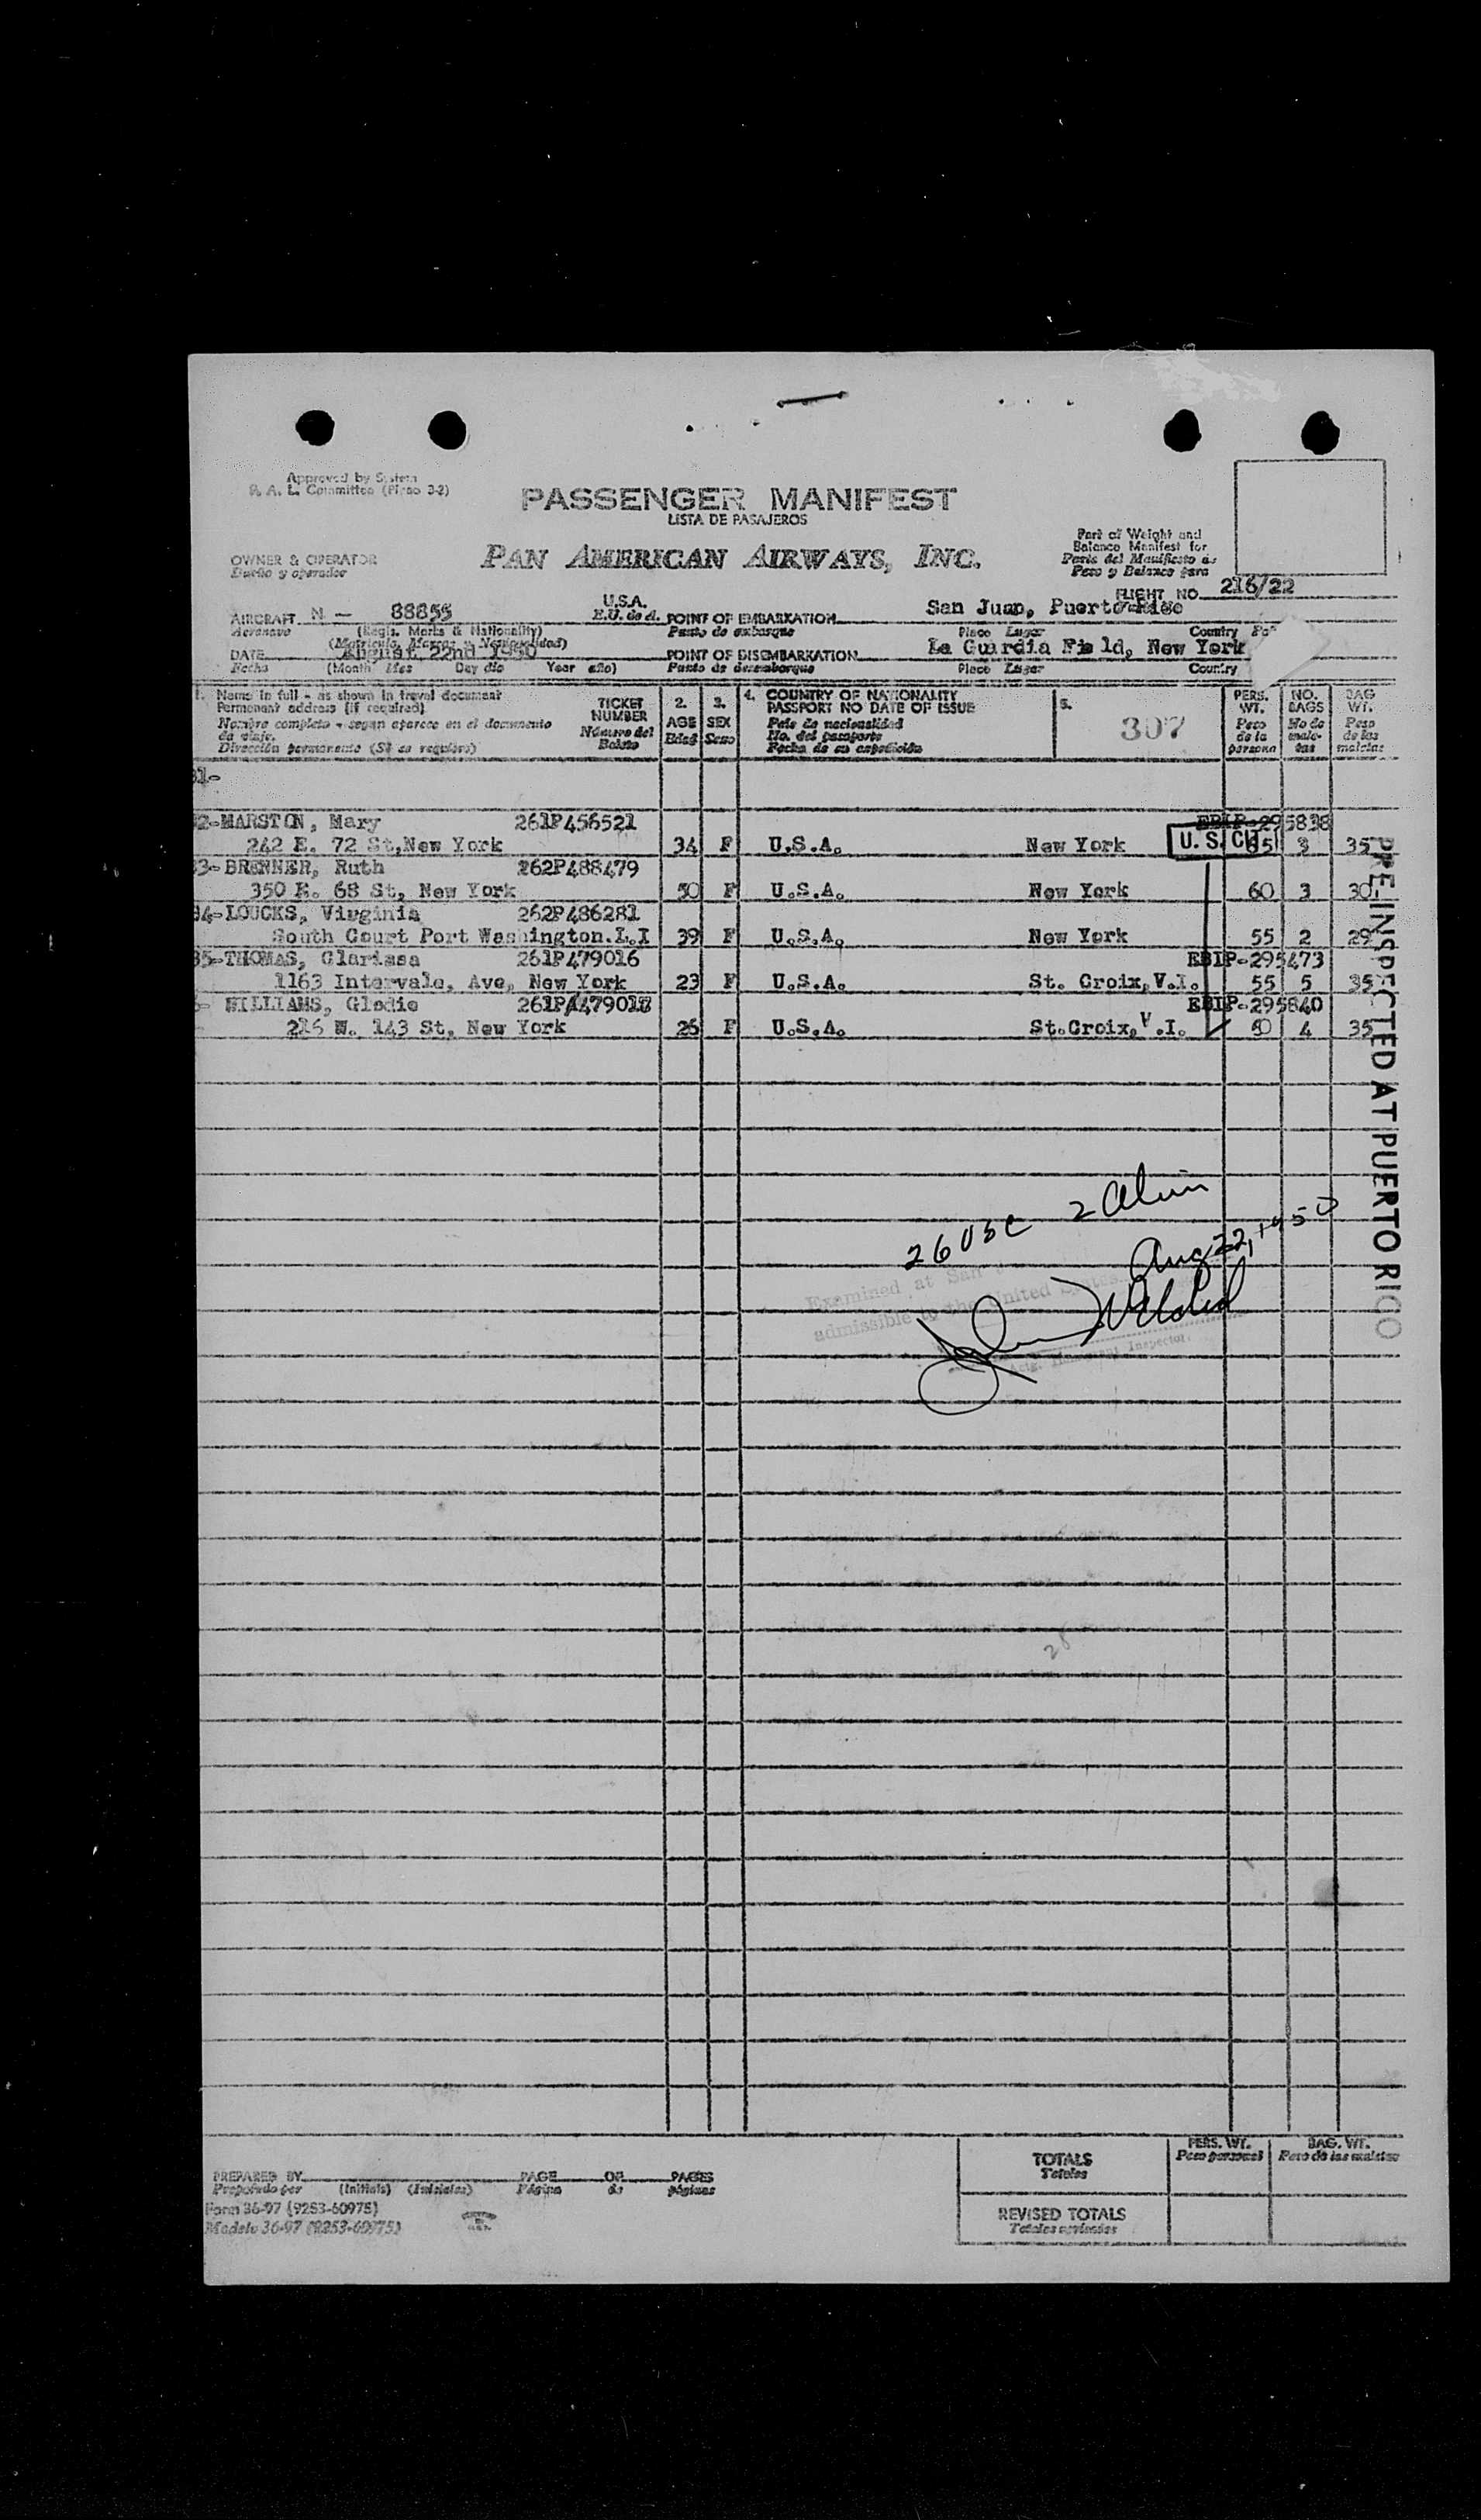 Approved by System
P. A. L. Committee (Piano 3-2)
PASSENGER MANIFEST
LISTA DE PASAJEROS
Part of Weight and
Balance Manifest for
Parte del Manifiesto de
Peso y Balance para
OWNER & OPERATOR
Dueño y operador
PAN AMERICAN AIRWAYS, INC.
FLIGHT NO. 216/22
AIRCRAFT N - 88855 U.S.A. POINT OF EMBARKATION San Juan, Puerto Rico
Aeronave (Regis. Marks & Nationality) E.U. de A. Punto de embarque Place Lugar Country
(Matricula, Marcas y Nacionalidad)
DATE August 22nd 1950 POINT OF DISEMBARKATION La Guardia Field, New York
Fecha (Month Mes Day dia Year año) Punto de desembarque Place Lugar Country
1. Name in full - as shown in travel document
Permanent address (if required)
Nombre completo - segun aparece en el documento
de viaje.
Dirección permanente (Si es requiere)
TICKET NUMBER
Número del Boleto
2. AGE Edad
3. SEX Sexo
4. COUNTRY OF NATIONALITY
PASSPORT NO DATE OF ISSUE
Pais de nacionalidad
No. del pasaporte
Fecha de su expedición
5. 307
PERS. WT. Peso de la persona
NO. BAGS No de maletas
BAG WT. Peso de las maletas
31-
32-MARSTON, Mary 261P456521 EBIP-295838
242 E. 72 St, New York 34 F U.S.A. New York U.S.C. 3 35
33-BRENNER, Ruth 262P488479
350 E. 68 St, New York 50 F U.S.A. New York 60 3 30
34-LOUCKS, Virginia 262P486281
South Court Port Washington.L.I 39 F U.S.A. New York 55 2 29
35-THOMAS, Clarissa 261P479016 EBIP-295473
1163 Intervale, Ave, New York 23 F U.S.A. St. Croix, V.I. 55 5 35
WILLIAMS, Glodie 261P479017 EBIP-295840
216 W. 143 St, New York 26 F U.S.A. St.Croix, V.I. 50 4 35
PRE-INSPECTED AT PUERTO RICO
26 USC 2 alien
Aug 22, 1950
Examined at San
admissible to the United States
Inspector.
28
PREPARED BY PAGE OF PAGES
Preparado por (Initials) (Iniciales) Página de páginas
Form 36-97 (9253-60975)
Modelo 36-97 (9253-60975)
TOTALS
Totales
REVISED TOTALS
Totales revisados
PERS. WT.
Peso personal
BAG. WT.
Peso de las maletas